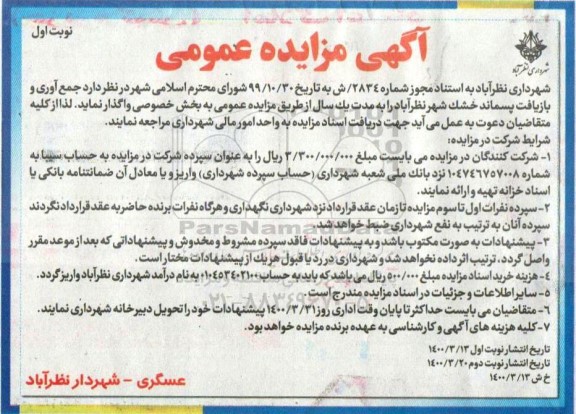 نوبت اول
آگهی مزایده عمومی
شهرداری نظرآباد
شهرداری نظرآباد به استناد مجوز شماره ۲۸۳۴/ش به تاریخ ۹۹/۱۰/۳۰ شورای محترم اسلامی شهر در نظر دارد جمع آوری و
بازیافت پسماند خشك شهر نظرآباد را به مدت یك سال از طریق مزایده عمومی به بخش خصوصی واگذار نماید. لذا از کلیه
متقاضیان دعوت به عمل می آید جهت دریافت اسناد مزایده به واحد امور مالی شهرداری مراجعه نمایند.
شرایط شرکت در مزایده:
۱- شرکت کنندگان در مزایده می بایست مبلغ ۳/۳۰۰/۰۰۰/۰۰۰ ریال را به عنوان سپرده شرکت در مزایده به حساب سیبا به
شماره ۰۱۰۴۷۴۶۷۵۷۰۰۸ نزد بانك ملی شعبه شهرداری (حساب سپرده شهرداری) واریز و یا معادل آن ضمانتنامه بانکی یا
اسناد خزانه تهیه و ارائه نمایند.
۲- سپرده نفرات اول تا سوم مزایده تا زمان عقد قرارداد نزد شهرداری نگهداری و هرگاه نفرات برنده حاضر به عقد قرارداد نگردند
سپرده آنان به ترتیب به نفع شهرداری ضبط خواهد شد.
۳- پیشنهادات به صورت مکتوب باشد و به پیشنهادات فاقد سپرده مشروط و مخدوش و پیشنهاداتی که بعد از موعد مقرر
واصل گردد، ترتیب اثر داده نخواهد شد و شهرداری در رد یا قبول هر یك از پیشنهادات مختار است.
۴- هزینه خرید اسناد مزایده مبلغ ۵۰۰/۰۰۰ ریال می باشد که باید به حساب ۰۱۰۴۵۳۴۰۲۱۰۰۰ به نام درآمد شهرداری نظرآباد واریز گردد.
۵- سایر اطلاعات و جزئیات در اسناد مزایده مندرج است.
۶- متقاضیان می بایست حداکثر تا پایان وقت اداری روز ۱۴۰۰/۳/۳۱ پیشنهادات خود را تحویل دبیرخانه شهرداری نمایند.
۷- کلیه هزینه های آگهی و کارشناسی به عهده برنده مزایده خواهد بود.
تاریخ انتشار نوبت اول ۱۴۰۰/۳/۱۳
تاریخ انتشار نوبت دوم ۱۴۰۰/۳/۲۰
خ ش ۱۴۰۰/۳/۱۳
عسگری - شهردار نظرآباد